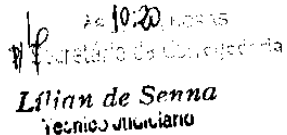 Às 10:20 HORAS
Secretário da Corregedoria
Lílian de Senna
Técnico Judiciário